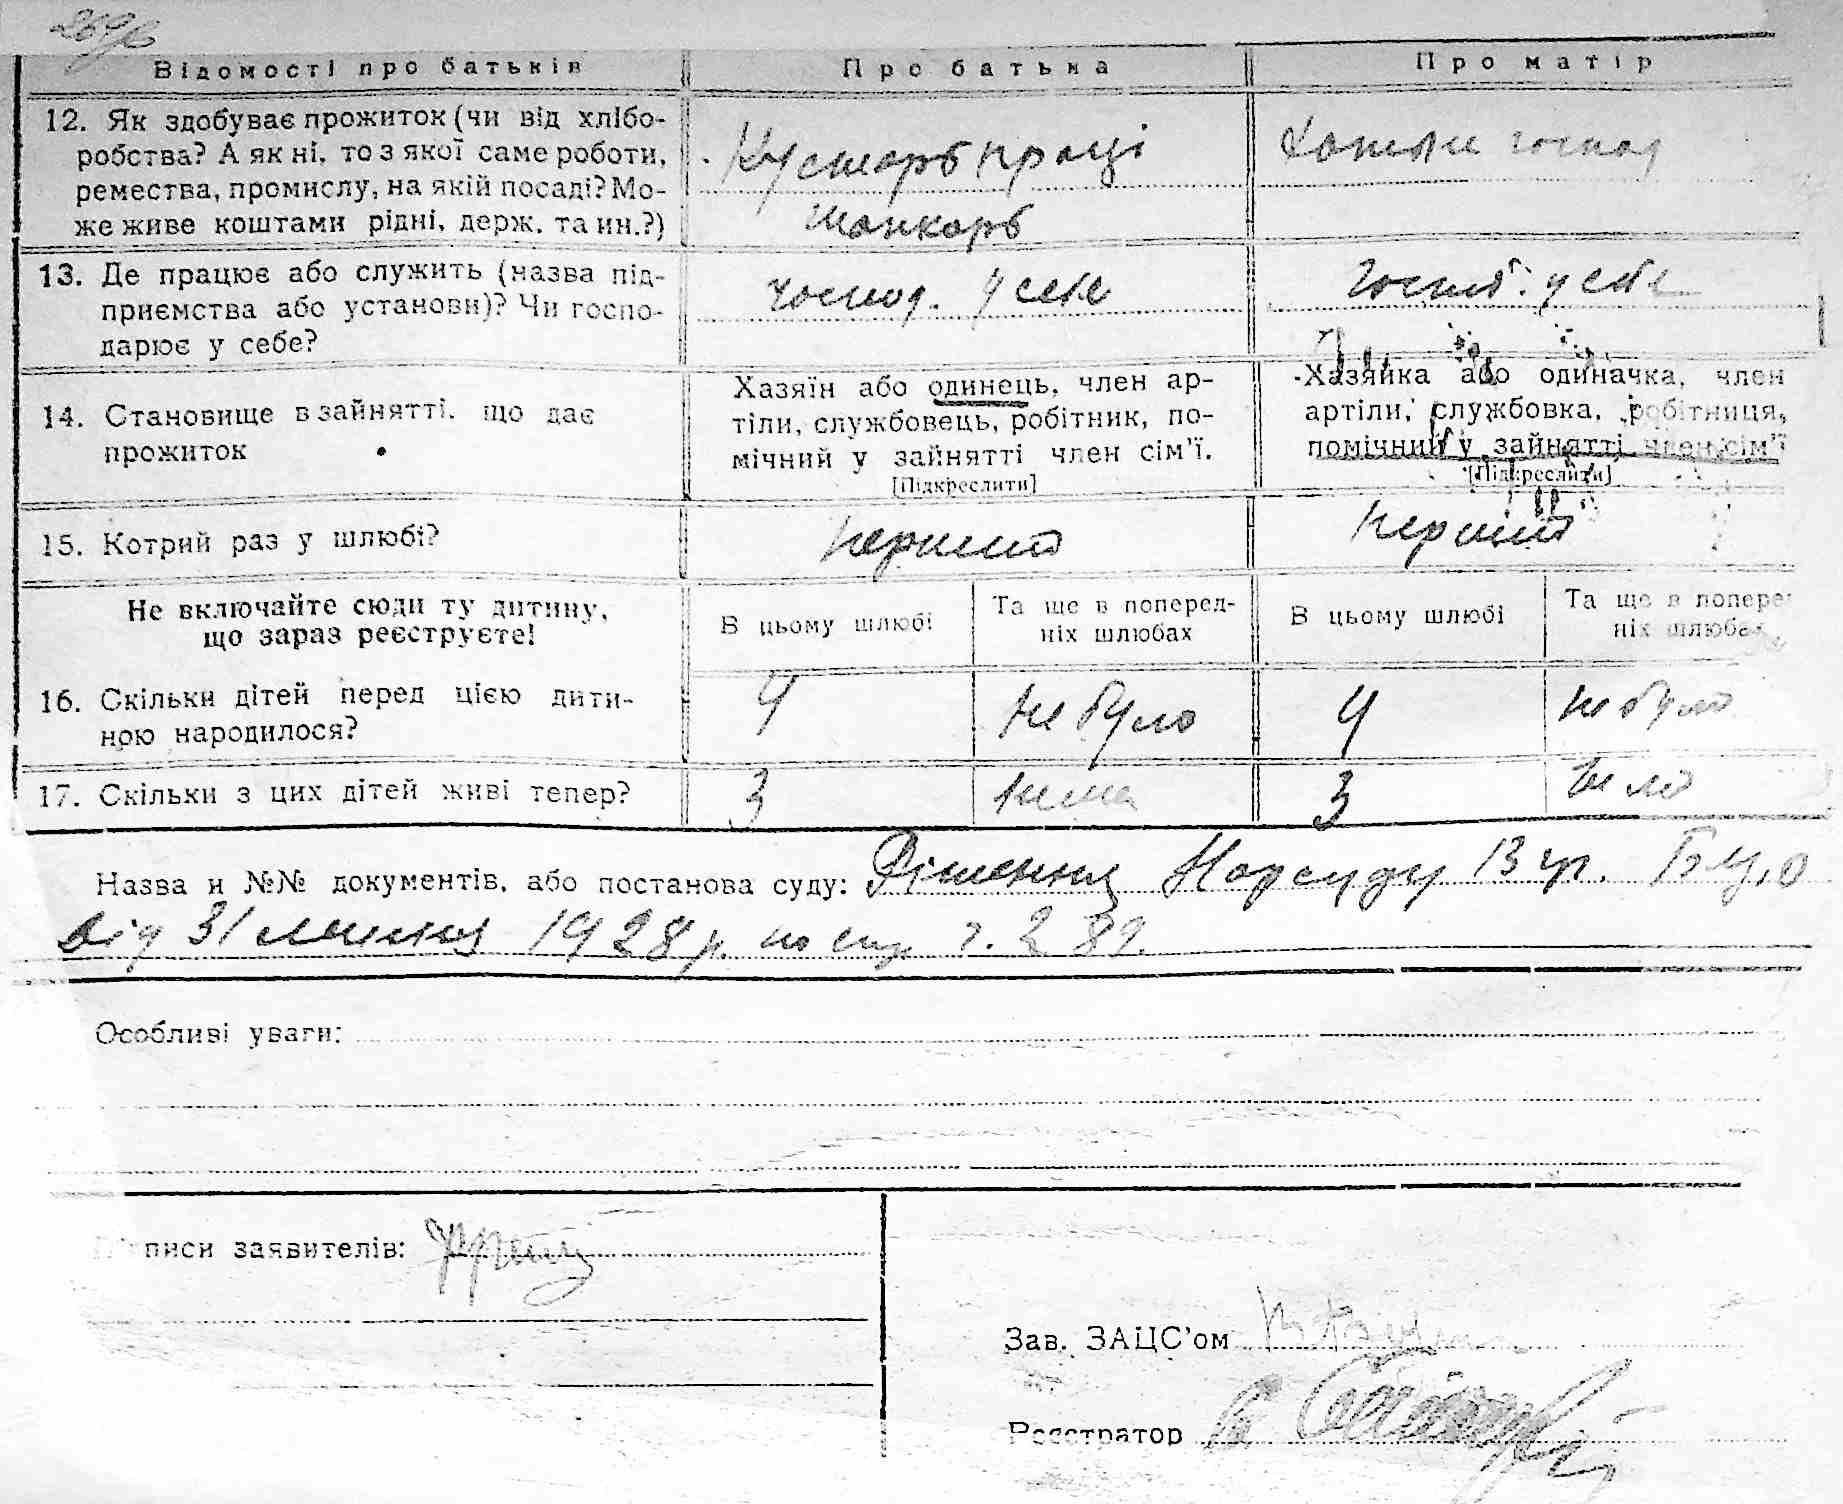 Відомості про батьків Про батька Про матір
12. Як здобуває прожиток (чи від хлібо-
робства? А як ні, то з якої саме роботи,
ремества, промислу, на якій посаді? Мо-
же живе коштами рідні, держ. та ин.?)
Кустарь праці
шапкарь
Хатнє господ
13. Де працює або служить (назва під-
приємства або установи)? Чи госпо-
дарює у себе?
господ. у себе
у себе
14. Становище в зайнятті, що дає
прожиток
Хазяїн або одинець, член ар-
тіли, службовець, робітник, по-
мічний у зайнятті член сім'ї.
[Підкреслити]
Хазяйка або одиначка, член
артіли, службовка, робітниця,
помічний у зайнятті член сім'ї
[Підкреслити]
15. Котрий раз у шлюбі?
перший
перший
Не включайте сюди ту дитину,
що зараз реєструєте!
В цьому шлюбі
Та ще в поперед-
ніх шлюбах
В цьому шлюбі
Та ще в попере
ніх шлюбах
16. Скільки дітей перед цією дити-
ною народилося?
4 не було 4 не було
17. Скільки з цих дітей живі тепер?
3 нема 3
Назва и №№ документів, або постанова суду: Рішення Нарсуду
від 31 липня 1928 р. по спр. ч. 289.
Особливі уваги:
писи заявителів:
Зав. ЗАЦС'ом
Реєстратор